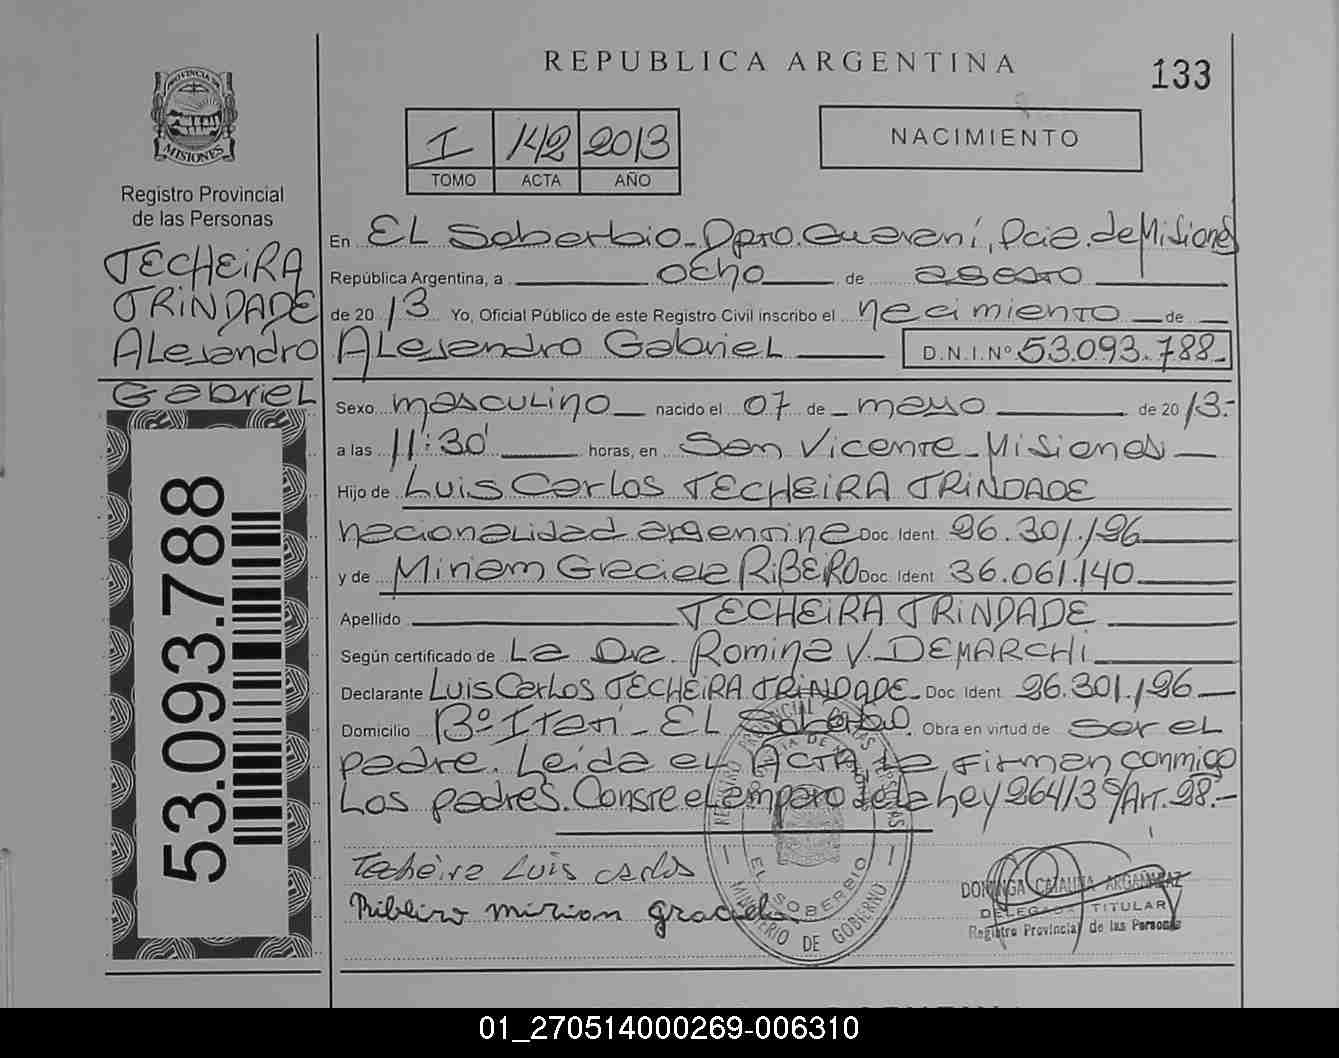 REPUBLICA ARGENTINA
133
PROVINCIA DE
MISIONES
Registro Provincial
de las Personas
TECHEIRA
TRINDADE
ALejandro
Gabriel
53.093.788
I 142 2013
TOMO ACTA AÑO
NACIMIENTO
En EL Soberbio - Dpto. Guaraní, Pcia. de Misiones
República Argentina, a ocho de agosto
de 2013 Yo, Oficial Público de este Registro Civil inscribo el nacimiento de
ALejandro Gabriel D.N.I.Nº 53.093.788-
Sexo masculino nacido el 07 de mayo de 2013.-
a las 11:30' horas, en San Vicente - Misiones
Hijo de Luis Carlos TECHEIRA TRINDADE
nacionalidad argentina Doc. Ident. 26.301.126
y de Miriam Graciela RiBEIRO Doc. Ident. 36.061.140
Apellido TECHEIRA TRINDADE
Según certificado de La Dra. Romina V. DEMARCHI
Declarante Luis Carlos TECHEIRA TRINDADE Doc. Ident. 26.301.126
Domicilio Bº Itatí - EL Soberbio. Obra en virtud de ser el
padre. Leída el ACTA, La firman conmigo
Los padres. Conste el amparo de la Ley Art. 28.-
Techeira Luis carlos
Ribeiro mirian graciela
REGISTRO PROVINCIAL DE LAS PERSONAS
EL SOBERBIO
MINISTERIO DE GOBIERNO
DOMINGA CATALINA
DELEGADA TITULAR
Registro Provincial de las Personas
01_270514000269-006310